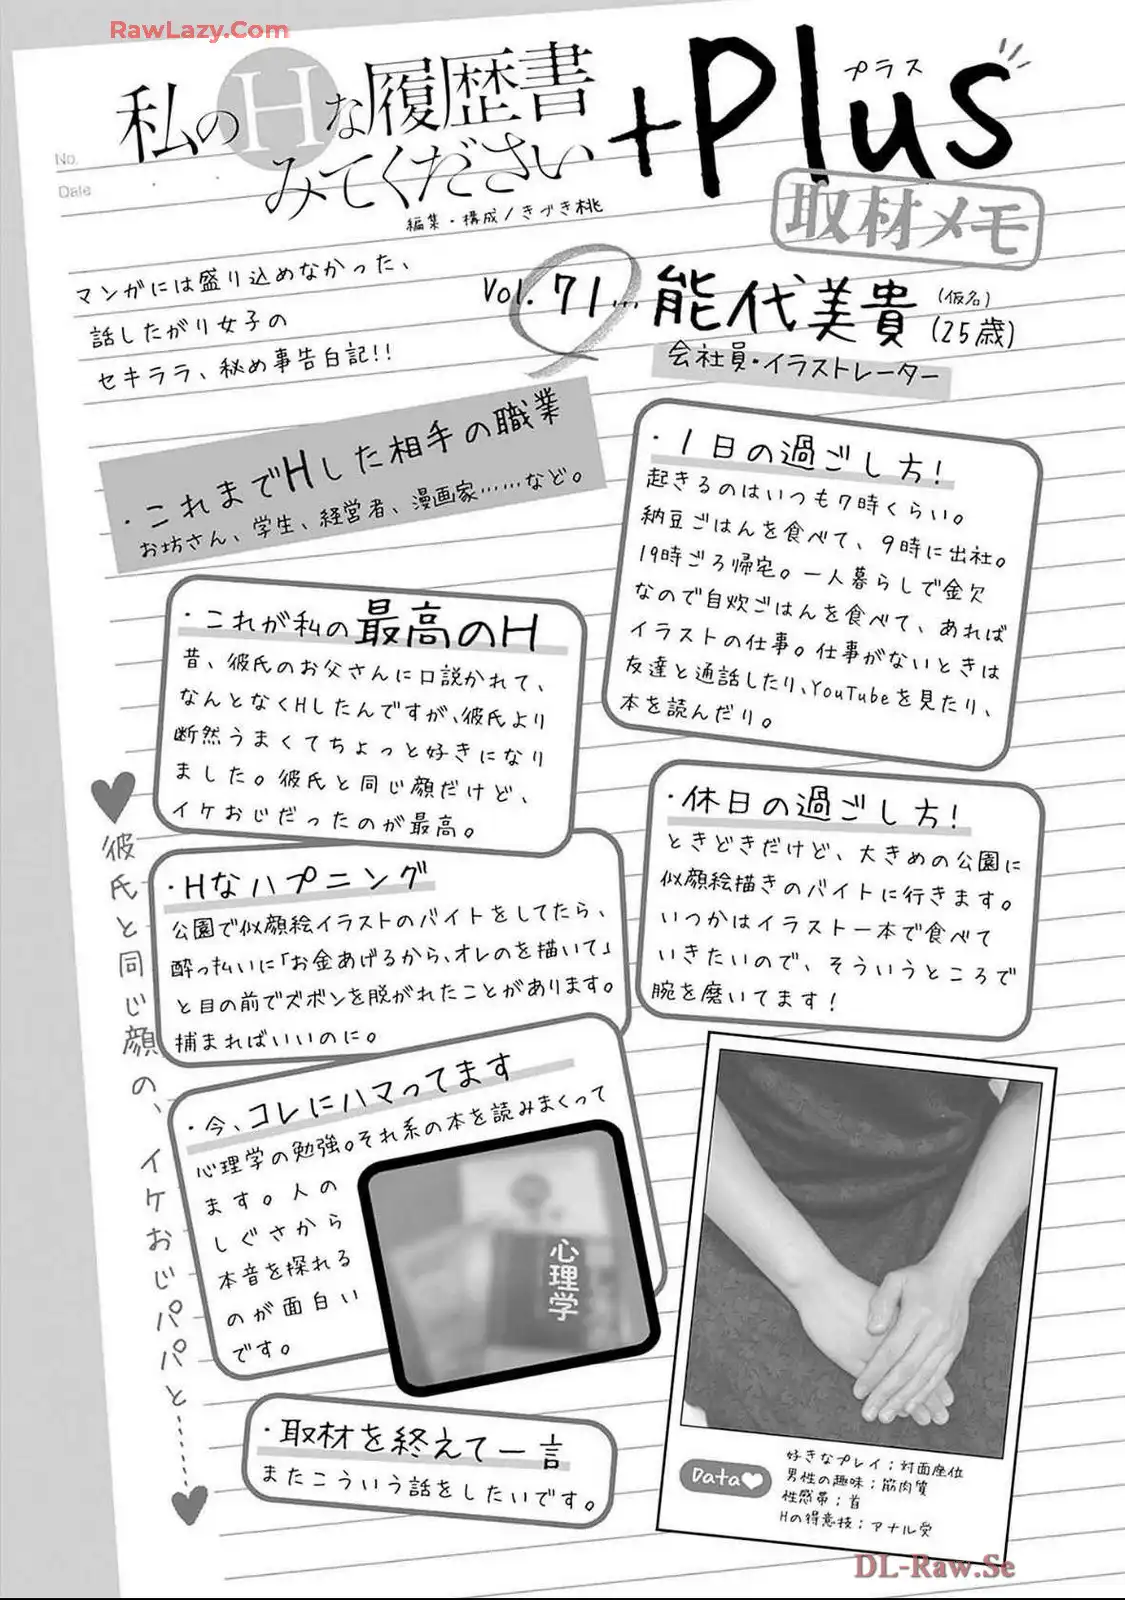 RawLazy.Com
私のHな履歴書
みてください
+Plus
プラス
取材メモ
No.
Date
編集・構成/きづき桃
マンガには盛り込めなかった、
話したがり女子の
セキララ、秘め事告白記!!
Vol. 71…
能代美貴
(仮名)
(25歳)
会社員・イラストレーター
・これまでHした相手の職業
お坊さん、学生、経営者、漫画家……など。
・1日の過ごし方!
起きるのはいつも7時くらい。
納豆ごはんを食べて、9時に出社。
19時ごろ帰宅。一人暮らしで金欠
なので自炊ごはんを食べて、あれば
イラストの仕事。仕事がないときは
友達と通話したり、YouTubeを見たり、
本を読んだり。
・これが私の最高のH
昔、彼氏のお父さんに口説かれて、
なんとなくHしたんですが、彼氏より
断然うまくてちょっと好きになり
ました。彼氏と同じ顔だけど、
イケおじだったのが最高。
・休日の過ごし方!
ときどきだけど、大きめの公園に
似顔絵描きのバイトに行きます。
いつかはイラスト一本で食べて
いきたいので、そういうところで
腕を磨いてます!
・Hなハプニング
公園で似顔絵イラストのバイトをしてたら、
酔っ払いに「お金あげるから、オレのを描いて」
と目の前でズボンを脱がれたことがあります。
捕まればいいのに。
・今、コレにハマってます
心理学の勉強。それ系の本を読みまくって
ます。人の
しぐさから
本音を探れる
のが面白い
です。
心理学
・取材を終えて一言
またこういう話をしたいです。
♥彼氏と同じ顔の、イケおじパパと……♥
Data♥
好きなプレイ:対面座位
男性の趣味:筋肉質
性感帯:首
Hの得意技:アナル受
DL-Raw.Se